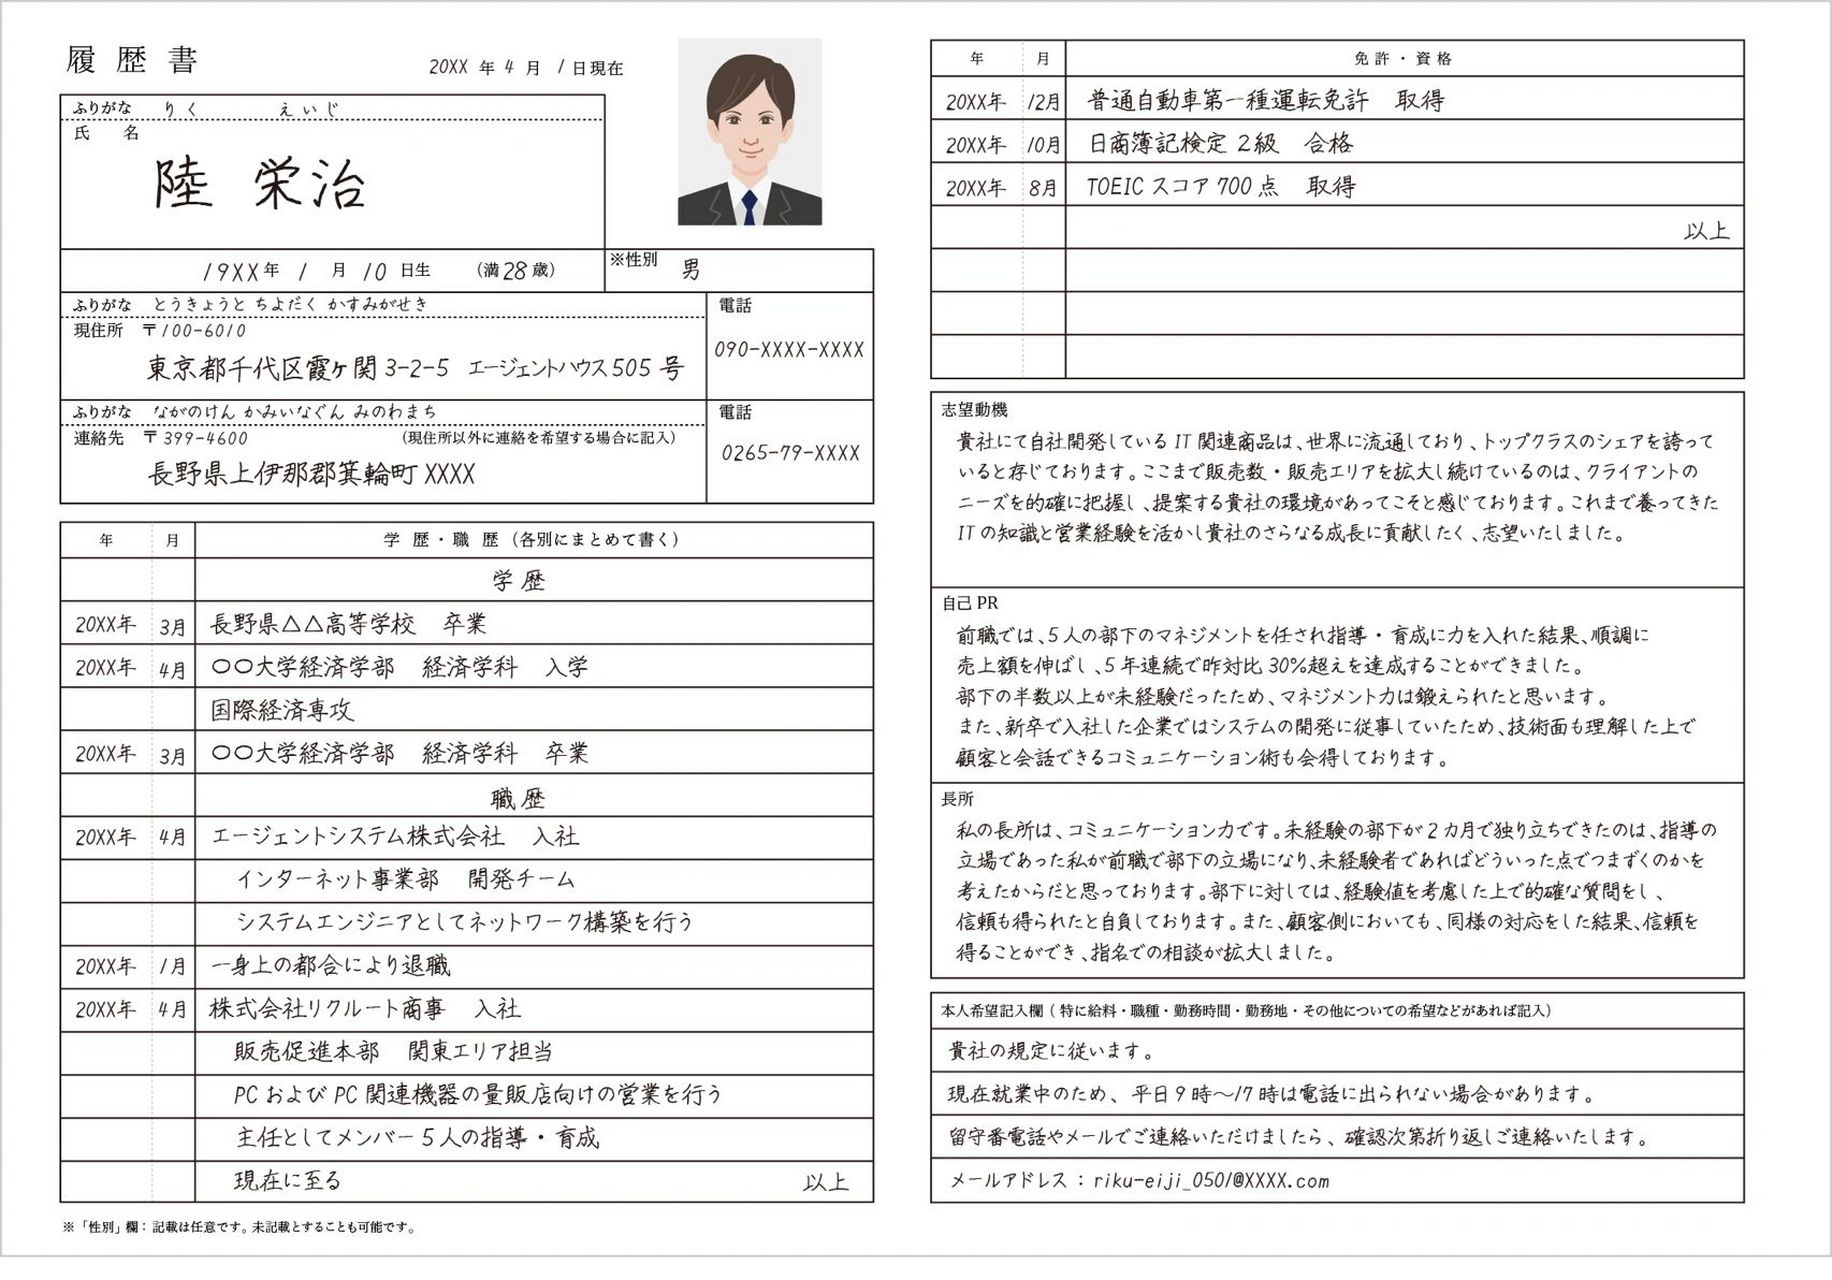 履歴書
20XX 年 4 月 1 日現在
ふりがな りく えいじ
氏 名
陸 栄治
19XX年 1 月 10 日生 (満28歳)
※性別 男
ふりがな とうきょうと ちよだく かすみがせき
現住所 〒100-6010
東京都千代区霞ヶ関3-2-5 エージェントハウス505号
電話
090-XXXX-XXXX
ふりがな ながのけん かみいなぐん みのわまち
連絡先 〒399-4600 (現住所以外に連絡を希望する場合に記入)
長野県上伊那郡箕輪町XXXX
電話
0265-79-XXXX
年 月 学 歴・職 歴(各別にまとめて書く)
学歴
20XX年 3月 長野県△△高等学校 卒業
20XX年 4月 〇〇大学経済学部 経済学科 入学
国際経済専攻
20XX年 3月 〇〇大学経済学部 経済学科 卒業
職歴
20XX年 4月 エージェントシステム株式会社 入社
インターネット事業部 開発チーム
システムエンジニアとしてネットワーク構築を行う
20XX年 1月 一身上の都合により退職
20XX年 4月 株式会社リクルート商事 入社
販売促進本部 関東エリア担当
PCおよびPC関連機器の量販店向けの営業を行う
主任としてメンバー5人の指導・育成
現在に至る 以上
※「性別」欄:記載は任意です。未記載とすることも可能です。
年 月 免許・資格
20XX年 12月 普通自動車第一種運転免許 取得
20XX年 10月 日商簿記検定2級 合格
20XX年 8月 TOEICスコア700点 取得
以上
志望動機
貴社にて自社開発しているIT関連商品は、世界に流通しており、トップクラスのシェアを誇って
いると存じております。ここまで販売数・販売エリアを拡大し続けているのは、クライアントの
ニーズを的確に把握し、提案する貴社の環境があってこそと感じております。これまで養ってきた
ITの知識と営業経験を活かし貴社のさらなる成長に貢献したく、志望いたしました。
自己PR
前職では、5人の部下のマネジメントを任され指導・育成に力を入れた結果、順調に
売上額を伸ばし、5年連続で昨対比30%超えを達成することができました。
部下の半数以上が未経験だったため、マネジメント力は鍛えられたと思います。
また、新卒で入社した企業ではシステムの開発に従事していたため、技術面も理解した上で
顧客と会話できるコミュニケーション術も会得しております。
長所
私の長所は、コミュニケーション力です。未経験の部下が2カ月で独り立ちできたのは、指導の
立場であった私が前職で部下の立場になり、未経験者であればどういった点でつまずくのかを
考えたからだと思っております。部下に対しては、経験値を考慮した上で的確な質問をし、
信頼も得られたと自負しております。また、顧客側においても、同様の対応をした結果、信頼を
得ることができ、指名での相談が拡大しました。
本人希望記入欄(特に給料・職種・勤務時間・勤務地・その他についての希望などがあれば記入)
貴社の規定に従います。
現在就業中のため、平日9時〜17時は電話に出られない場合があります。
留守番電話やメールでご連絡いただけましたら、確認次第折り返しご連絡いたします。
メールアドレス:riku-eiji_0501@XXXX.com